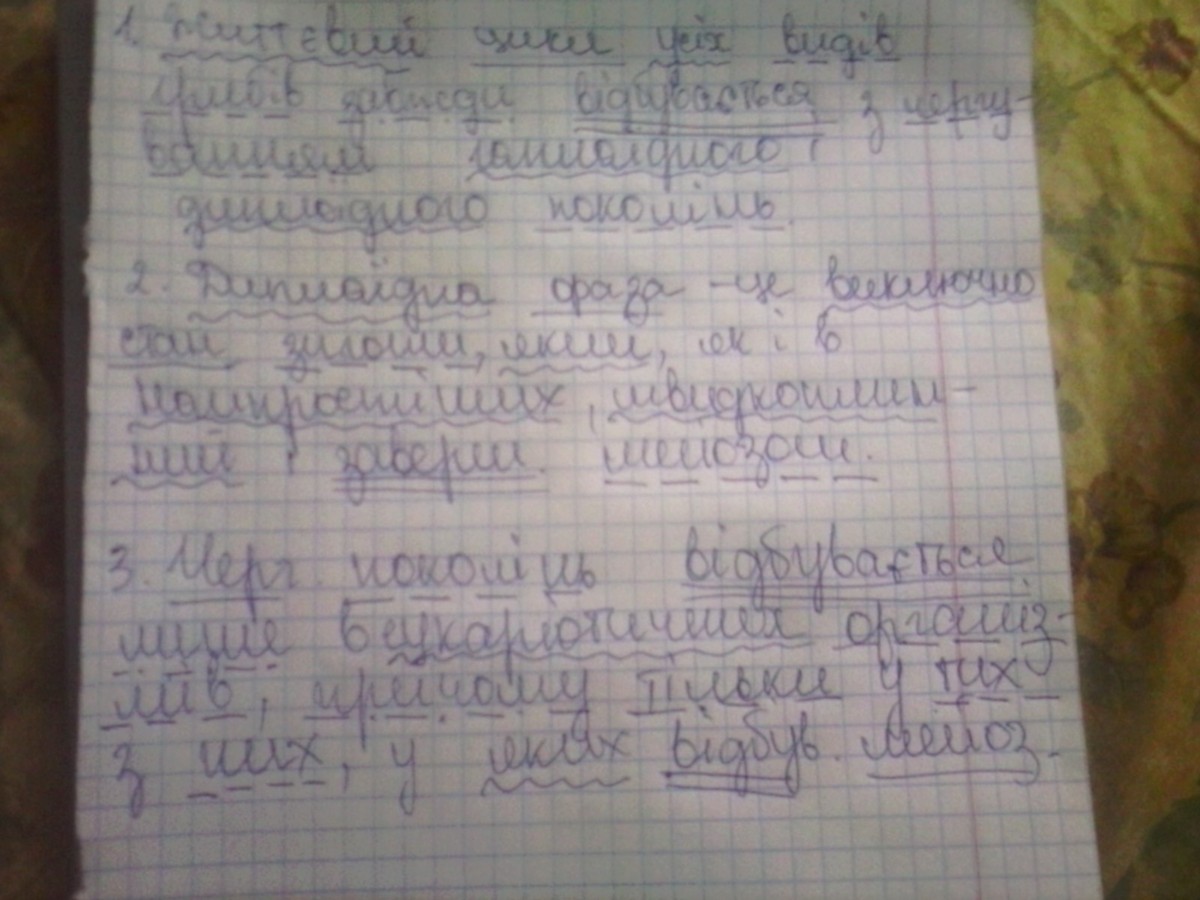 1. Життєвий цикл усіх видів
грибів завжди відбувається з чергу-
ванням гаплоїдного і
диплоїдного поколінь.
2. Диплоїдна фаза - це виключно
стан зиготи, який, як і в
найпростіших, швидкоплин-
ний і заверш. мейозом.
3. Черг. поколінь відбувається
лише в еукаріотичних організ-
мів, причому тільки у тих
з них, у яких відбув. мейоз.